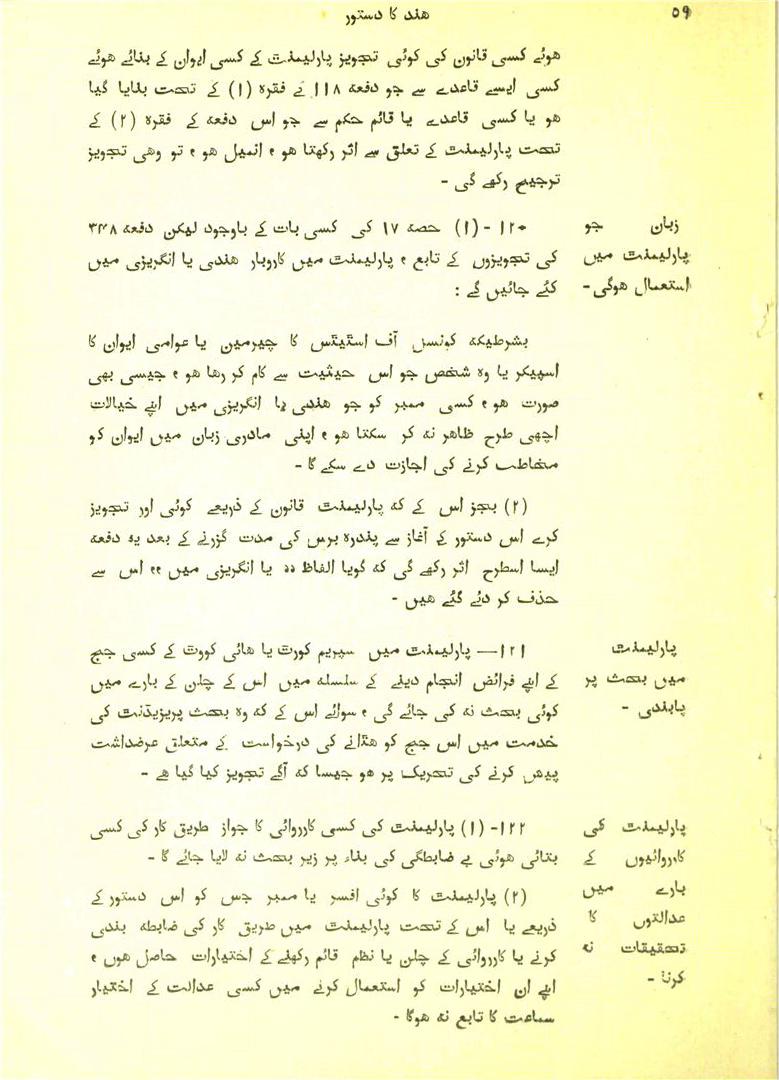 ھند کا دستور
۵۹
ھوئے کسی قانون کی کوئی تجویز پارلیمنٹ کے کسی ایوان کے بنائے ھوئے
کسی ایسے قاعدے سے جو دفعہ ۱۱۸ کے فقرہ (۱) کے تحت بنایا گیا
ھو یا کسی قاعدے یا قائم حکم سے جو اس دفعہ کے فقرہ (۲) کے
تحت پارلیمنٹ کے تعلق سے اثر رکھتا ھو ، انمیل ھو ، تو وھی تجویز
ترجیح رکھے گی -
زبان جو
پارلیمنٹ میں
استعمال ھوگی -
۱۲۰ - (۱) حصہ ۱۷ کی کسی بات کے باوجود لیکن دفعہ ۳۴۸
کی تجویزوں کے تابع ، پارلیمنٹ میں کاروبار ھندی یا انگریزی میں
کئے جائیں گے :
بشرطیکہ کونسل آف اسٹیٹس کا چیرمین یا عوامی ایوان کا
اسپیکر یا وہ شخص جو اس حیثیت سے کام کر رھا ھو ، جیسی بھی
صورت ھو ، کسی ممبر کو جو ھندی یا انگریزی میں اپنے خیالات
اچھی طرح ظاھر نہ کر سکتا ھو ، اپنی مادری زبان میں ایوان کو
مخاطب کرنے کی اجازت دے سکے گا -
(۲) بجز اس کے کہ پارلیمنٹ قانون کے ذریعے کوئی اور تجویز
کرے اس دستور کے آغاز سے پندرہ برس کی مدت گزرنے کے بعد یہ دفعہ
ایسا اسطرح اثر رکھے گی کہ گویا الفاظ ,, یا انگریزی میں ،، اس سے
حذف کر دئے گئے ھیں -
پارلیمنٹ
میں بحث پر
پابندی -
۱۲۱— پارلیمنٹ میں سپریم کورٹ یا ھائی کووٹ کے کسی جج
کے اپنے فرائض انجام دینے کے سلسلہ میں اس کے چلن کے بارے میں
کوئی بحث نہ کی جائے گی ، سوائے اس کے کہ وہ بحث پریزیڈنٹ کی
خدمت میں اس جج کو ھٹانے کی درخواست کے متعلق عرضداشت
پیش کرنے کی تحریک پر ھو جیسا کہ آگے تجویز کیا گیا ھے -
پارلیمنٹ کی
کارروائیوں کے
بارے میں
عدالتوں کا
تحقیقات نہ
کرنا -
۱۲۲- (۱) پارلیمنٹ کی کسی کارروائی کا جواز طریق کار کی کسی
بتائی ھوئی بے ضابطگی کی بناء پر زیر بحث نہ لایا جائے گا -
(۲) پارلیمنٹ کا کوئی افسر یا ممبر جس کو اس دستور کے
ذریعے یا اس کے تحت پارلیمنٹ میں طریق کار کی ضابطہ بندی
کرنے یا کارروائی کے چلن یا نظم قائم رکھنے کے اختیارات حاصل ھوں ،
اپنے ان اختیارات کو استعمال کرنے میں کسی عدالت کے اختیار
سماعت کا تابع نہ ھوگا -